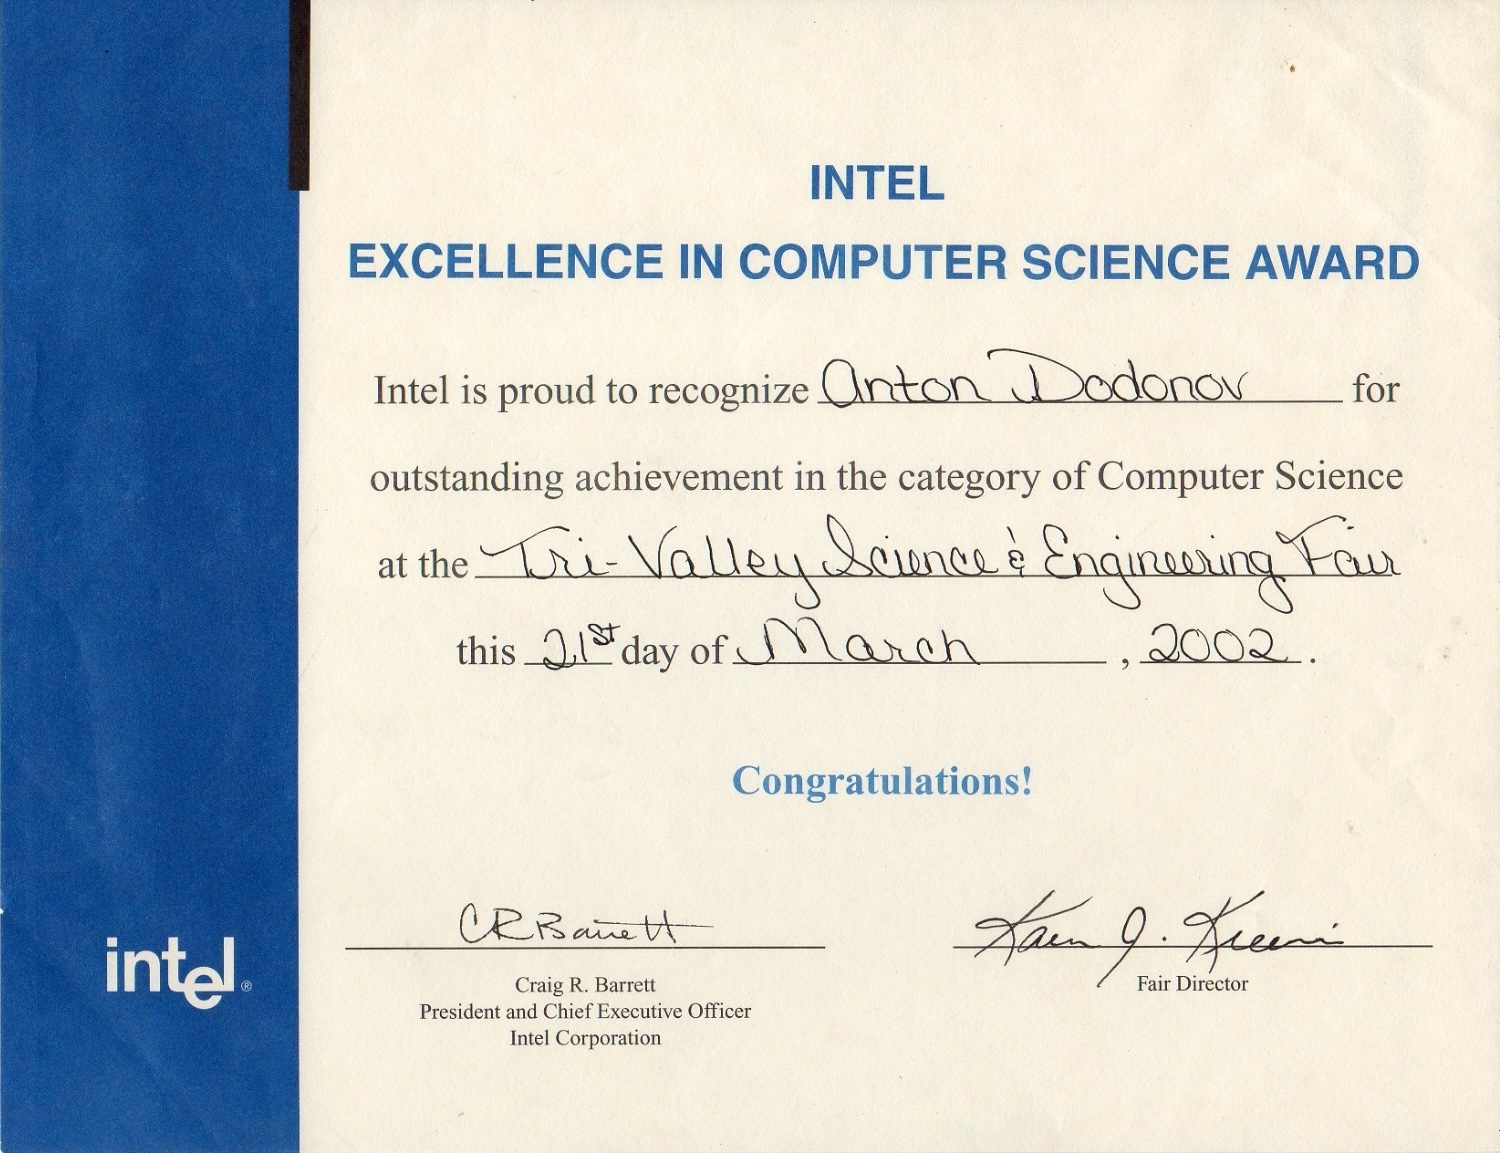 INTEL
EXCELLENCE IN COMPUTER SCIENCE AWARD
Intel is proud to recognize Anton Dodonov for
outstanding achievement in the category of Computer Science
at the Tri-Valley Science & Engineering Fair
this 21st day of March, 2002.
Congratulations!
CRBarrett
Karen J.
Craig R. Barrett
President and Chief Executive Officer
Intel Corporation
Fair Director
intel®